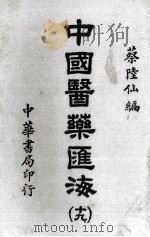 蔡陸仙編
中國醫藥匯海
(十九)
中華書局印行